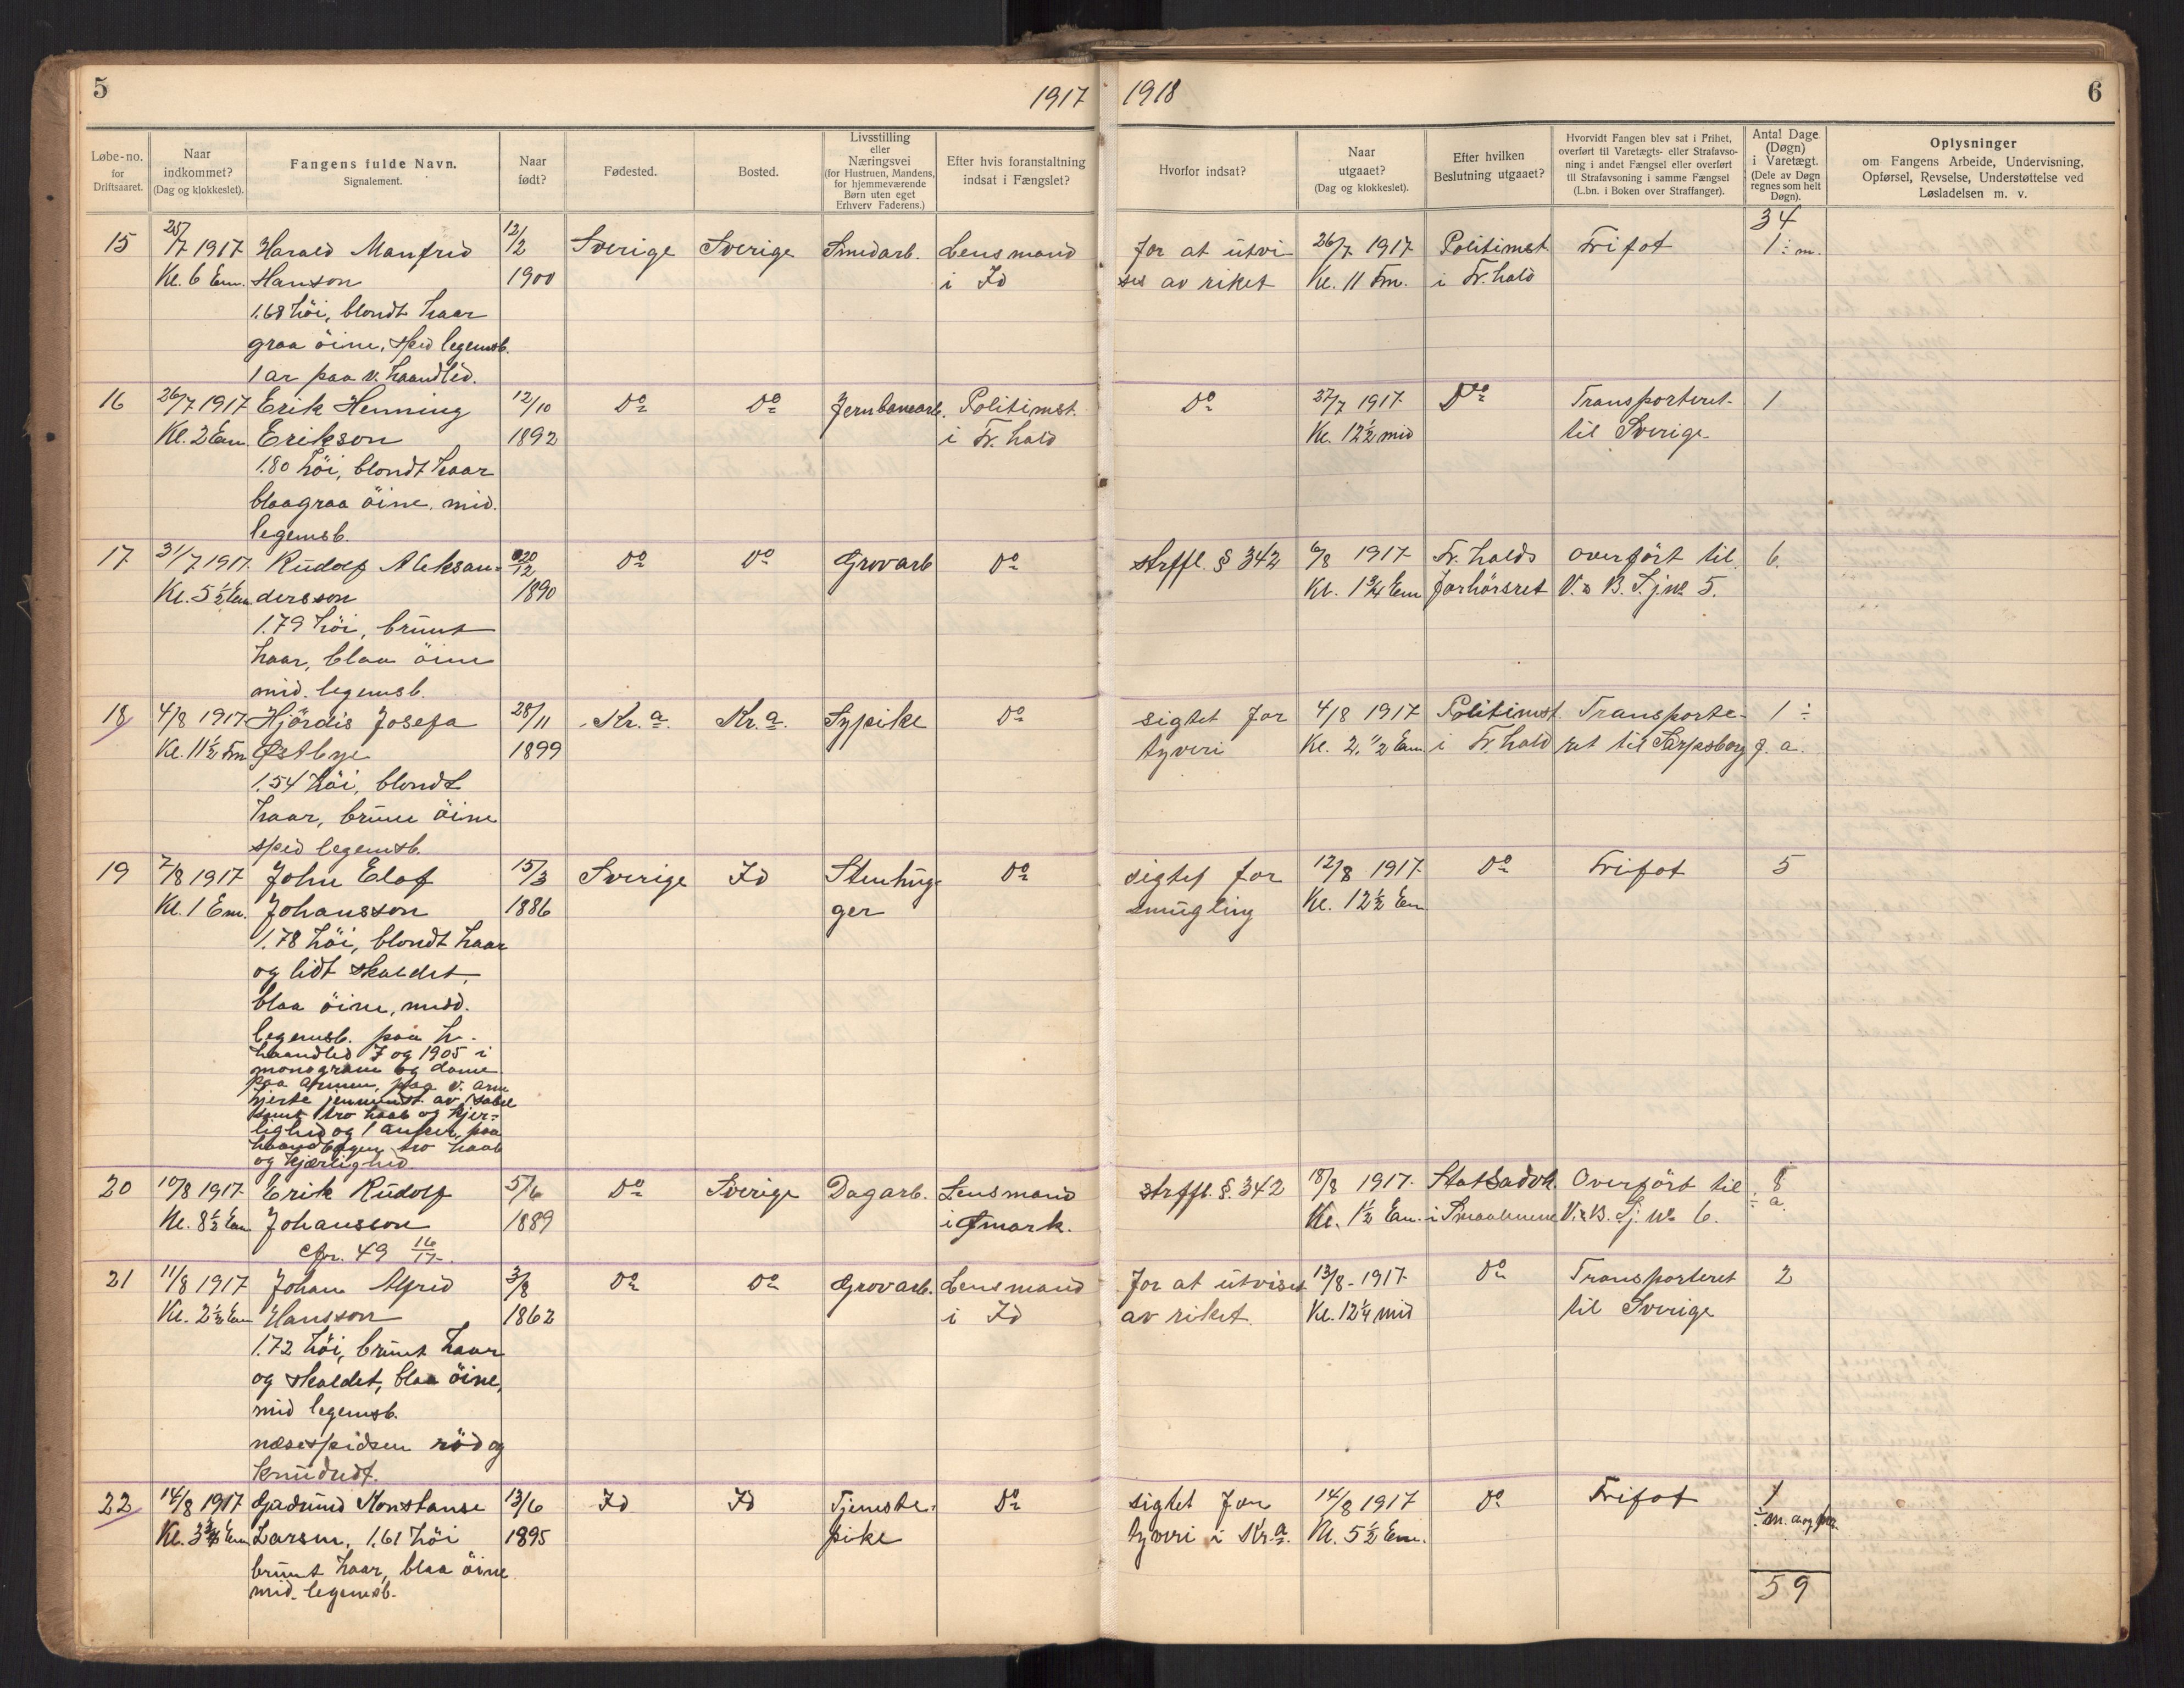 5
1917
1918
6
Løbe-no. for Driftsaaret.
Naar indkommet? (Dag og klokkeslet).
Fangens fulde Navn. Signalement.
Naar født?
Fødested.
Bosted.
Livsstilling eller Næringsvei (for Hustruen, Mandens, for hjemmeværende Børn uten eget Erhverv Faderens.)
Efter hvis foranstaltning indsat i Fængslet?
Hvorfor indsat?
Naar utgaaet? (Dag og klokkeslet).
Efter hvilken Beslutning utgaaet?
Hvorvidt Fangen blev sat i Frihet, overført til Varetægts- eller Strafavsoning i andet Fængsel eller overført til Strafavsoning i samme Fængsel (L.bn. i Boken over Straffanger).
Antal Dage (Døgn) i Varetægt. (Dele av Døgn regnes som helt Døgn).
Oplysninger om Fangens Arbeide, Undervisning, Opførsel, Revselse, Understøttelse ved Løsladelsen m. v.
34
15 25/7 1917 Harald Manfrid 12/2 Sverige Sverige Smedarb. Lensmand for at utvi 26/7 1917 Politimst Frifot 1 ÷ m.
Kl. 6 Em. Hanson 1900 i Id ses av riket Kl. 11 Fm. i Fr.hald
1.68 höi, blondt haar
graa öine, sped legemsb.
1 ar paa v. haandled.
16 26/7 1917 Erik Henning 12/10 Do Do Jernbanearb. Politimst. Do 27/7 1917 Do Transporteret 1
Kl. 2 Em. Erikson 1892 i Fr.hald Kl. 12½ mid til Sverige
1.80 höi, blondt haar
blaagraa öine, mid.
legemsb.
17 31/7 1917 Rudolf Aleksan- 20/12 Do Do Grovarb Do strffl. § 342 6/8 1917 Fr.halds overfört til 6.
Kl. 5½ Em dersson 1890 Kl. 1¾ Em forhörsret V. B. Fj. No 5.
1.79 höi, brunt
haar, blaa öine
mid. legemsb.
18 4/8 1917 Hjördis Josefa 28/11 Kr.a. Kr.a. Sypike Do sigtet for 4/8 1917 Politimst Transporte- 1 ÷
Kl. 11½ Fm Østbye 1899 tyveri Kl. 2½ Em i Fr.hald ret til Sarpsborg f. a.
1.54 höi, blondt
haar, brune öine
sped legemsb.
19 7/8 1917 John Elof 15/3 Sverige Id Stenhug- Do sigtet for 12/8 1917 Do Frifot 5
Kl. 1 Em. Johansson 1886 ger smugling Kl. 12½ Em
1.78 höi, blondt haar
og lidt skaldet,
blaa öine, midd.
legemsb. paa h.
haandled J og 1905 i
monogram og dame
paa armen, paa v. arm
hjerte jennemst. av sabel
samt tro haab og kjer-
lighed og 1 anker, paa
tro haab
og kjærlighed
20 10/8 1917 Erik Rudolf 5/6 Do Sverige Dagarb. Lensmand strffl. § 342 18/8 1917 Statsadvk. Overfört til 8
Kl. 8½ Em Johansson 1889 i Ømark. Kl. 1½ Em. i Smaalenene V. B. Fj. No 6. ÷ a.
Cfr. 49 16/17
21 11/8 1917 Johan Alfred 3/8 Do Do Grovarb. Lensmand for at utvises 13/8 1917 Do Transporteret 2
Kl. 2½ Em Hansson 1862 i Id av riket. Kl. 12¼ mid til Sverige
1.72 höi, brunt haar
og skaldet, blaa öine,
mid legemsb.
næsespidsen röd og
knudret.
22 14/8 1917 Gudrund Konstanse 13/6 Id Id Tjeneste- Do sigtet for 14/8 1917 Do Frifot 1
Kl. 3¾ Em Larsen, 1.61 höi 1895 pike tyveri i Kr.a. Kl. 5½ Em. ÷ m.
brunt haar, blaa öine
mid. legemsb.
59